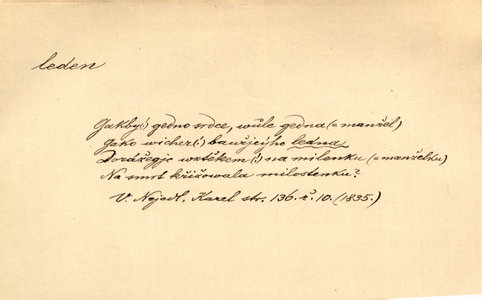 leden
Gakby(!) gedno srdce, wůle gedna (= manžel)
Jako wicher(!) bauřjcýho ledna,
Dorážegjc wztěkem(!) na milenku (= manželku)
Na smrt křižowala milostenku?
V. Nejedl. Karel str. 136. ř. 10. (1835.)